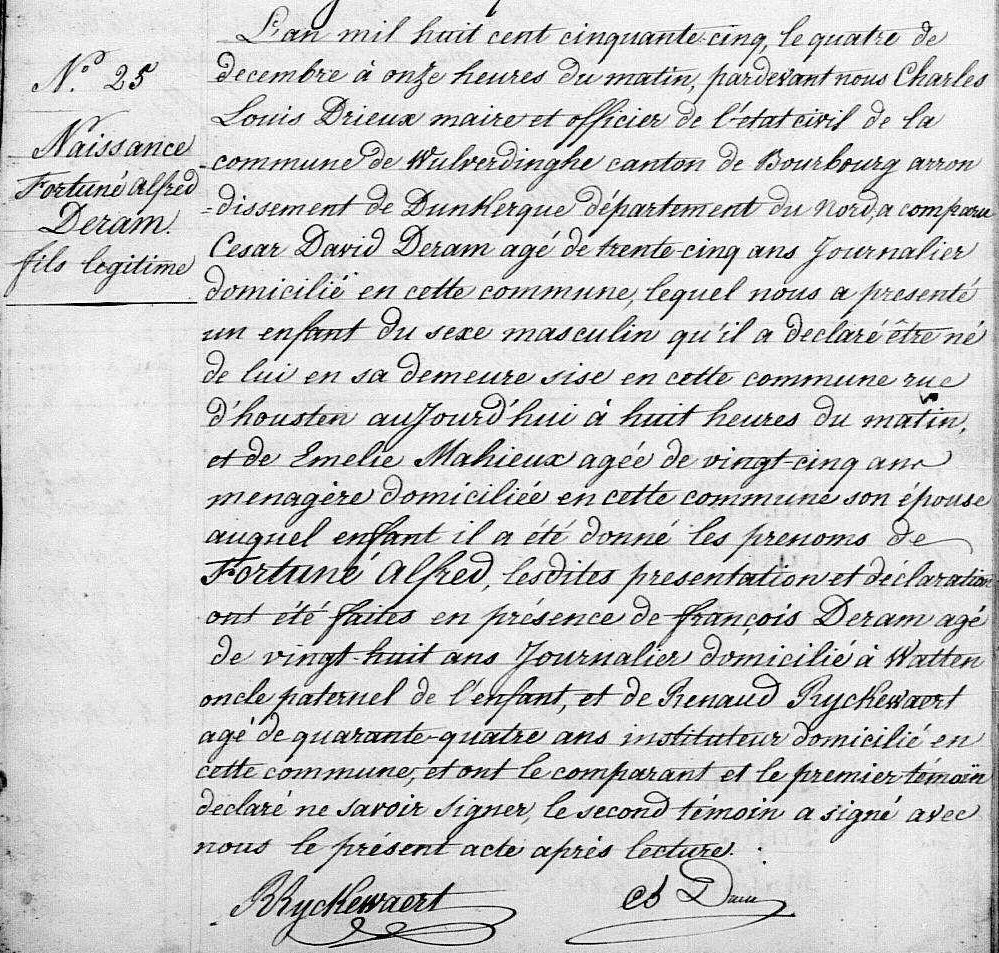 N.o 25
Naissance
Fortuné Alfred
Deram.
fils legitime
L'an mil huit cent cinquante-cinq, le quatre de
decembre à onze heures du matin, pardevant nous Charles
Louis Drieux maire et officier de l'état civil de la
commune de Wulverdinghe canton de Bourbourg arron
=dissement de Dunkerque département du Nord, a comparu
Cesar David Deram agé de trente-cinq ans Journalier
domicilié en cette commune, lequel nous a presenté
un enfant du sexe masculin qu'il a declaré être né
de lui en sa demeure sise en cette commune rue
d'housten aujourd'hui à huit heures du matin,
et de Emelie Mahieux agée de vingt-cinq ans
menagère domiciliée en cette commune son épouse
auquel enfant il a été donné les prenoms de
Fortuné Alfred, lesdites presentation et déclaration
ont été faites en présence de françois Deram agé
de vingt-huit ans Journalier domicilié à Watten
oncle paternel de l'enfant, et de Renaud Ryckewaert
agé de quarante-quatre ans instituteur domicilié en
cette commune, et ont le comparant et le premier témoin
declaré ne savoir signer, le second témoin a signé avec
nous le présent acte après lecture.
RRyckewaert
ch